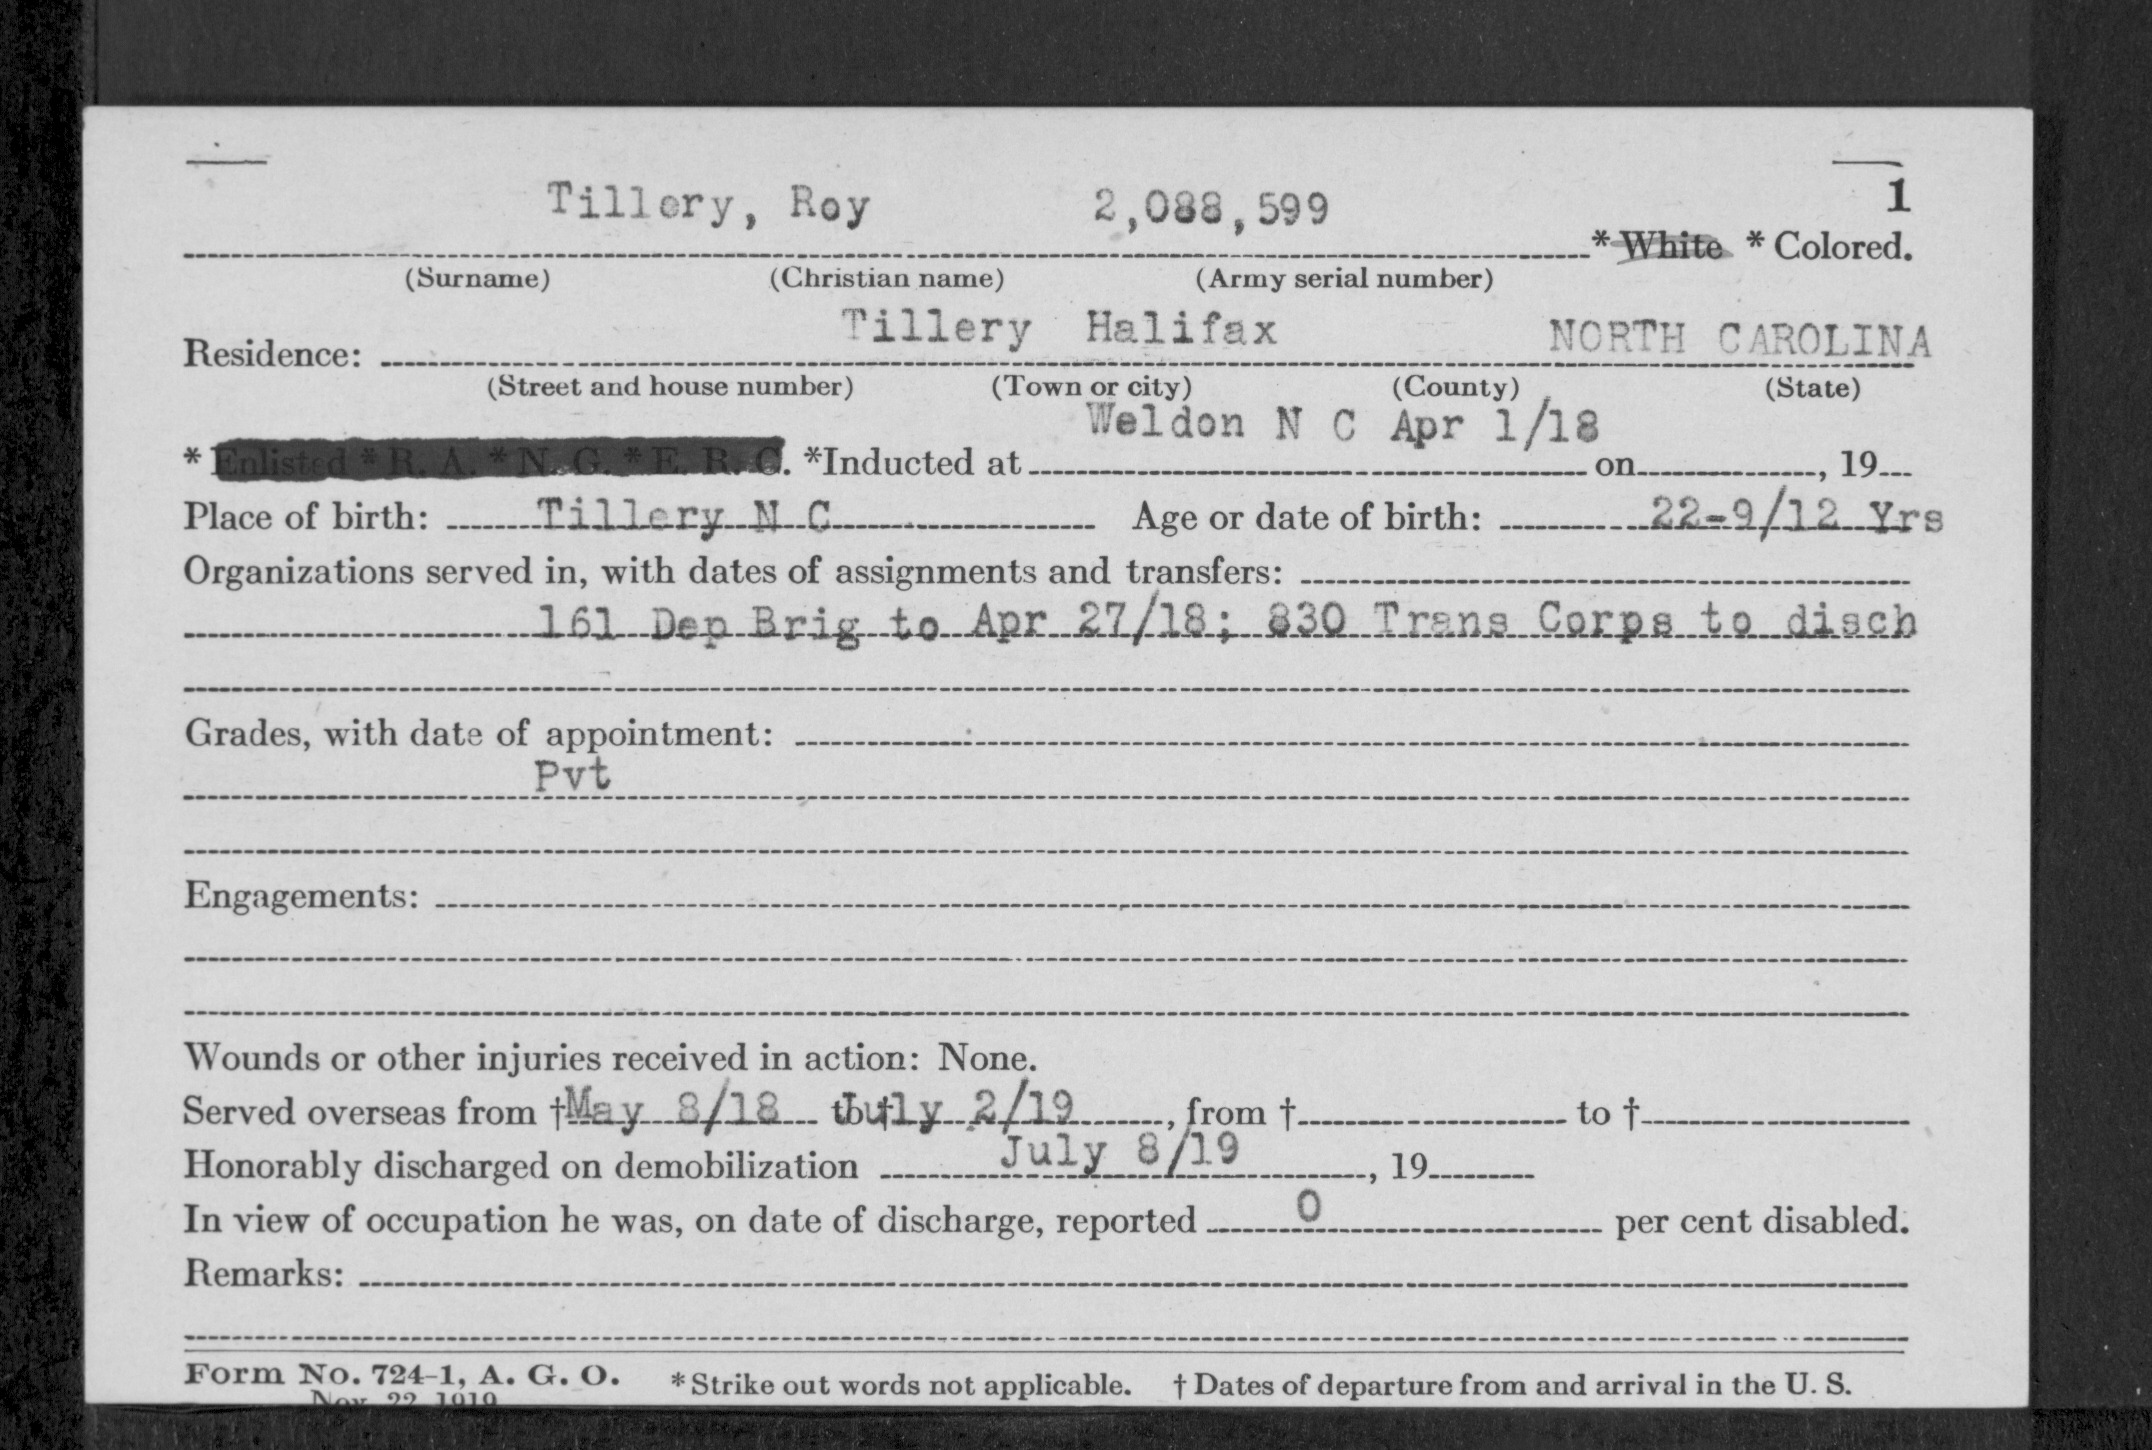 1
Tillery, Roy 2,088,599 * White * Colored.
(Surname) (Christian name) (Army serial number)
Residence: Tillery Halifax NORTH CAROLINA
(Street and house number) (Town or city) (County) (State)
* Enlisted * R. A. * N. G. * E. R. C. *Inducted at Weldon N C Apr 1/18 on , 19
Place of birth: Tillery N C Age or date of birth: 22-9/12 Yrs
Organizations served in, with dates of assignments and transfers:
161 Dep Brig to Apr 27/18; 830 Trans Corps to disch
Grades, with date of appointment:
Pvt
Engagements:
Wounds or other injuries received in action: None.
Served overseas from † May 8/18 to † July 2/19, from † to †
Honorably discharged on demobilization July 8/19, 19
In view of occupation he was, on date of discharge, reported 0 per cent disabled.
Remarks:
Form No. 724-1, A. G. O. * Strike out words not applicable. † Dates of departure from and arrival in the U. S.
Nov. 22, 1919